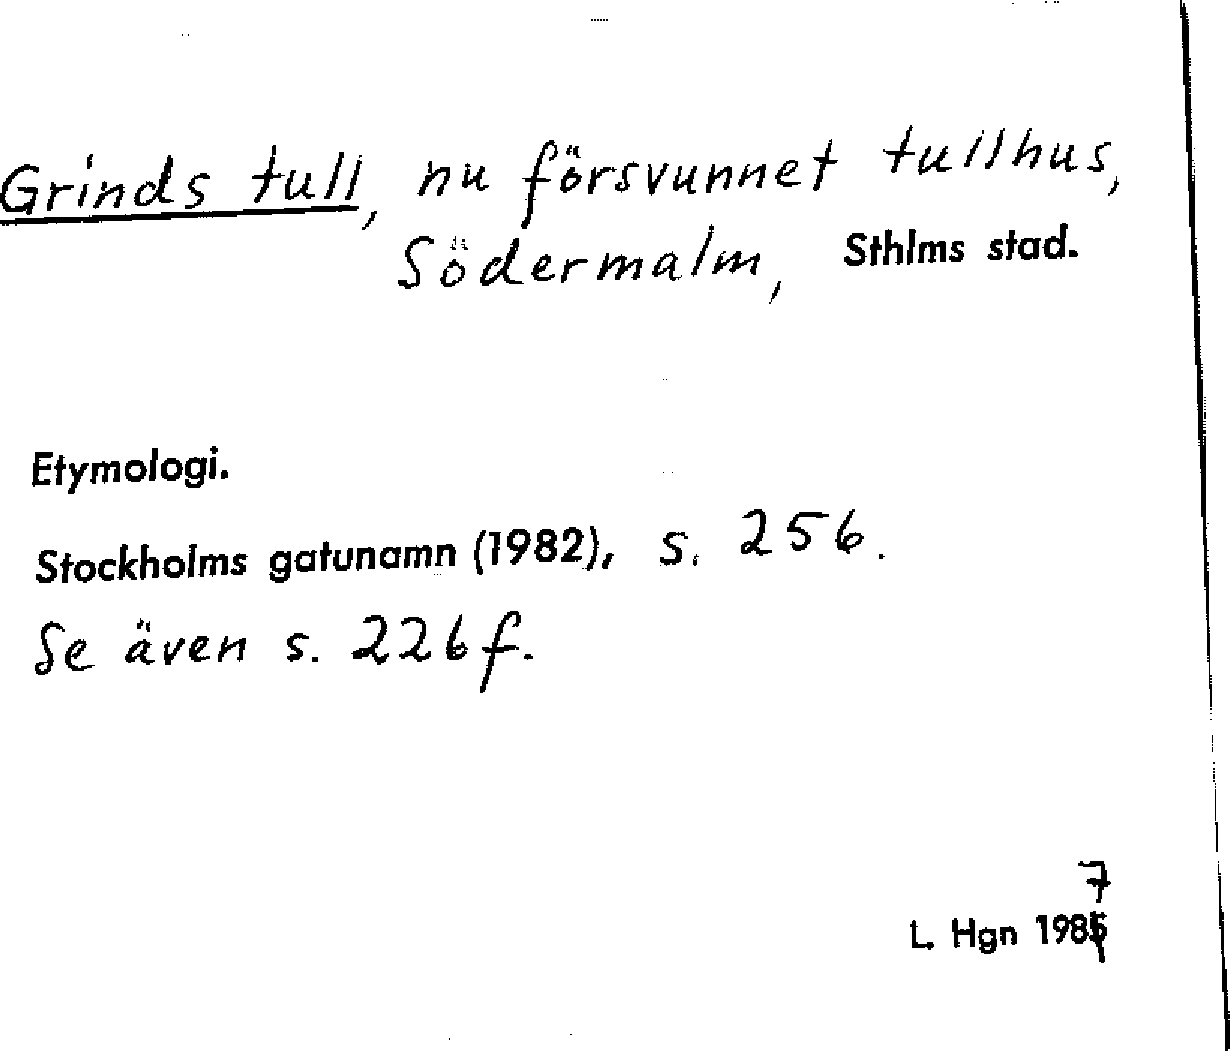 Grinds tull, nu försvunnet tullhus,
Södermalm, Sthlms stad.
Etymologi.
Stockholms gatunamn (1982), s. 256.
Se även s. 226 f.
7
L. Hgn 198